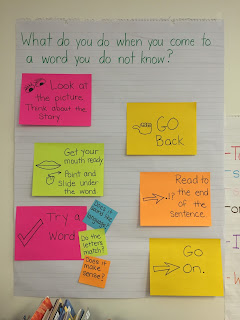 What do you do when you come to
a word you do not know?
Look at
the picture.
Think about the
Story
GO
Back.
Get your
mouth ready
Point and
Slide under
the word
Read to
the end
of the
sentence.
Try a
Word
Does the
word sound
Do the
letters
match?
Does it
make sense?
Go
On.